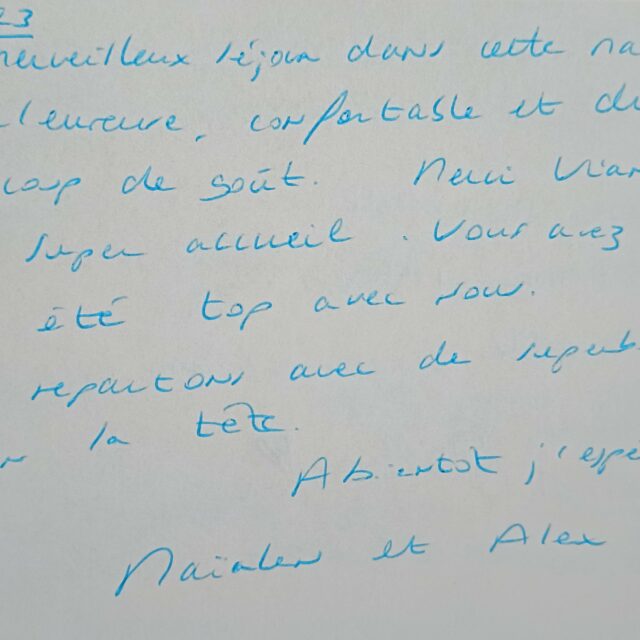 23
merveilleux séjour dans cette
confortable et
coup de goût. Merci
super accueil. Vous avez
été top avec nous.
repartons avec de
la tête.
A bientôt j'espè
et Alex